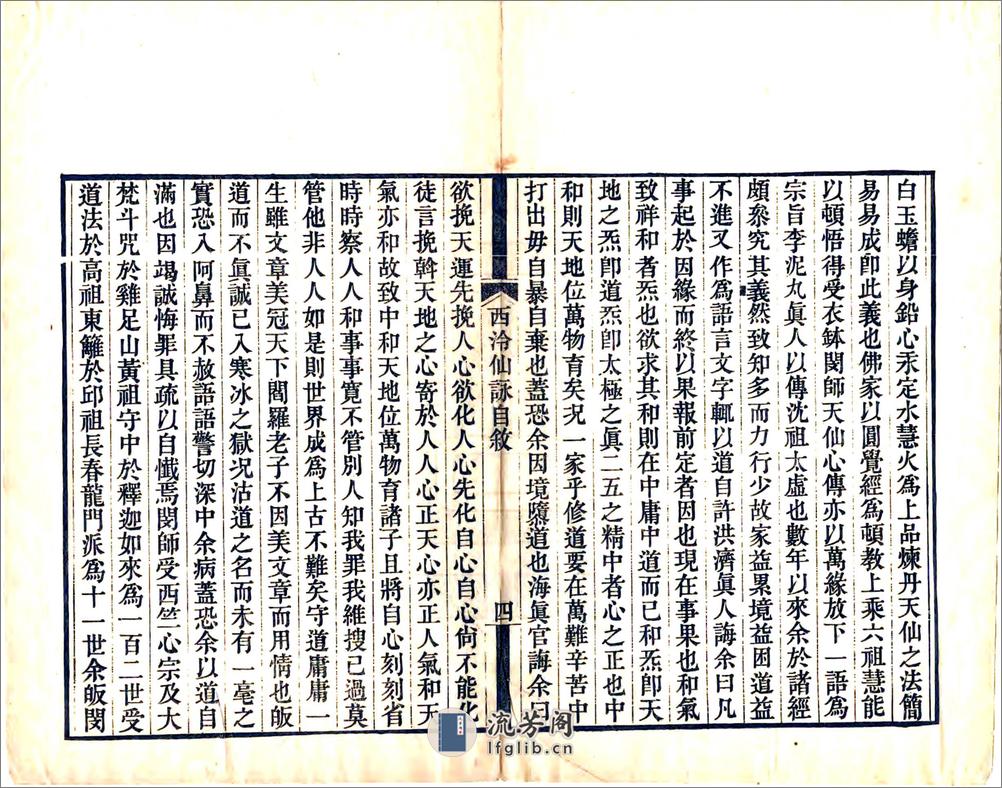 白玉蟾以身鉛心汞定水慧火爲上品煉丹天仙之法簡
易易成卽此義也佛家以圓覺經爲頓教上乘六祖慧能
以頓悟得受衣鉢閔師天仙心傳亦以萬緣放下一語爲
宗旨李泥丸眞人以傳沈祖太虛也數年以來余於諸經
頗叅究其義然致知多而力行少故家益累境益困道益
不進又作爲語言文字輒以道自許洪濟眞人誨余曰凡
事起於因緣而終以果報前定者因也現在事果也和氣
致祥和者炁也欲求其和則在中庸中道而已和炁卽天
地之炁卽道炁卽太極之眞二五之精中者心之正也中
和則天地位萬物育矣况一家乎修道要在萬難辛苦中
打出毋自暴自棄也蓋恐余因境隳道也海眞官誨余曰
西泠仙詠自敘
四
欲挽天運先挽人心欲化人心先化自心自心尙不能化
徒言挽斡天地之心寄於人人心正天心亦正人氣和天
氣亦和故致中和天地位萬物育諸子且將自心刻刻省
時時察人人和事事寬不管別人知我罪我維搜已過莫
管他非人人如是則世界成爲上古不難矣守道庸庸一
生雖文章美冠天下閻羅老子不因美文章而用情也皈
道而不眞誠已入寒冰之獄况沽道之名而未有一毫之
實恐入阿鼻而不赦語語警切深中余病蓋恐余以道自
滿也因竭誠悔罪具疏以自懺焉閔師受西竺心宗及大
梵斗咒於雞足山黃祖守中於釋迦如來爲一百二世受
道法於高祖東籬於邱祖長春龍門派爲十一世余皈閔
流芳阁
lfglib.cn